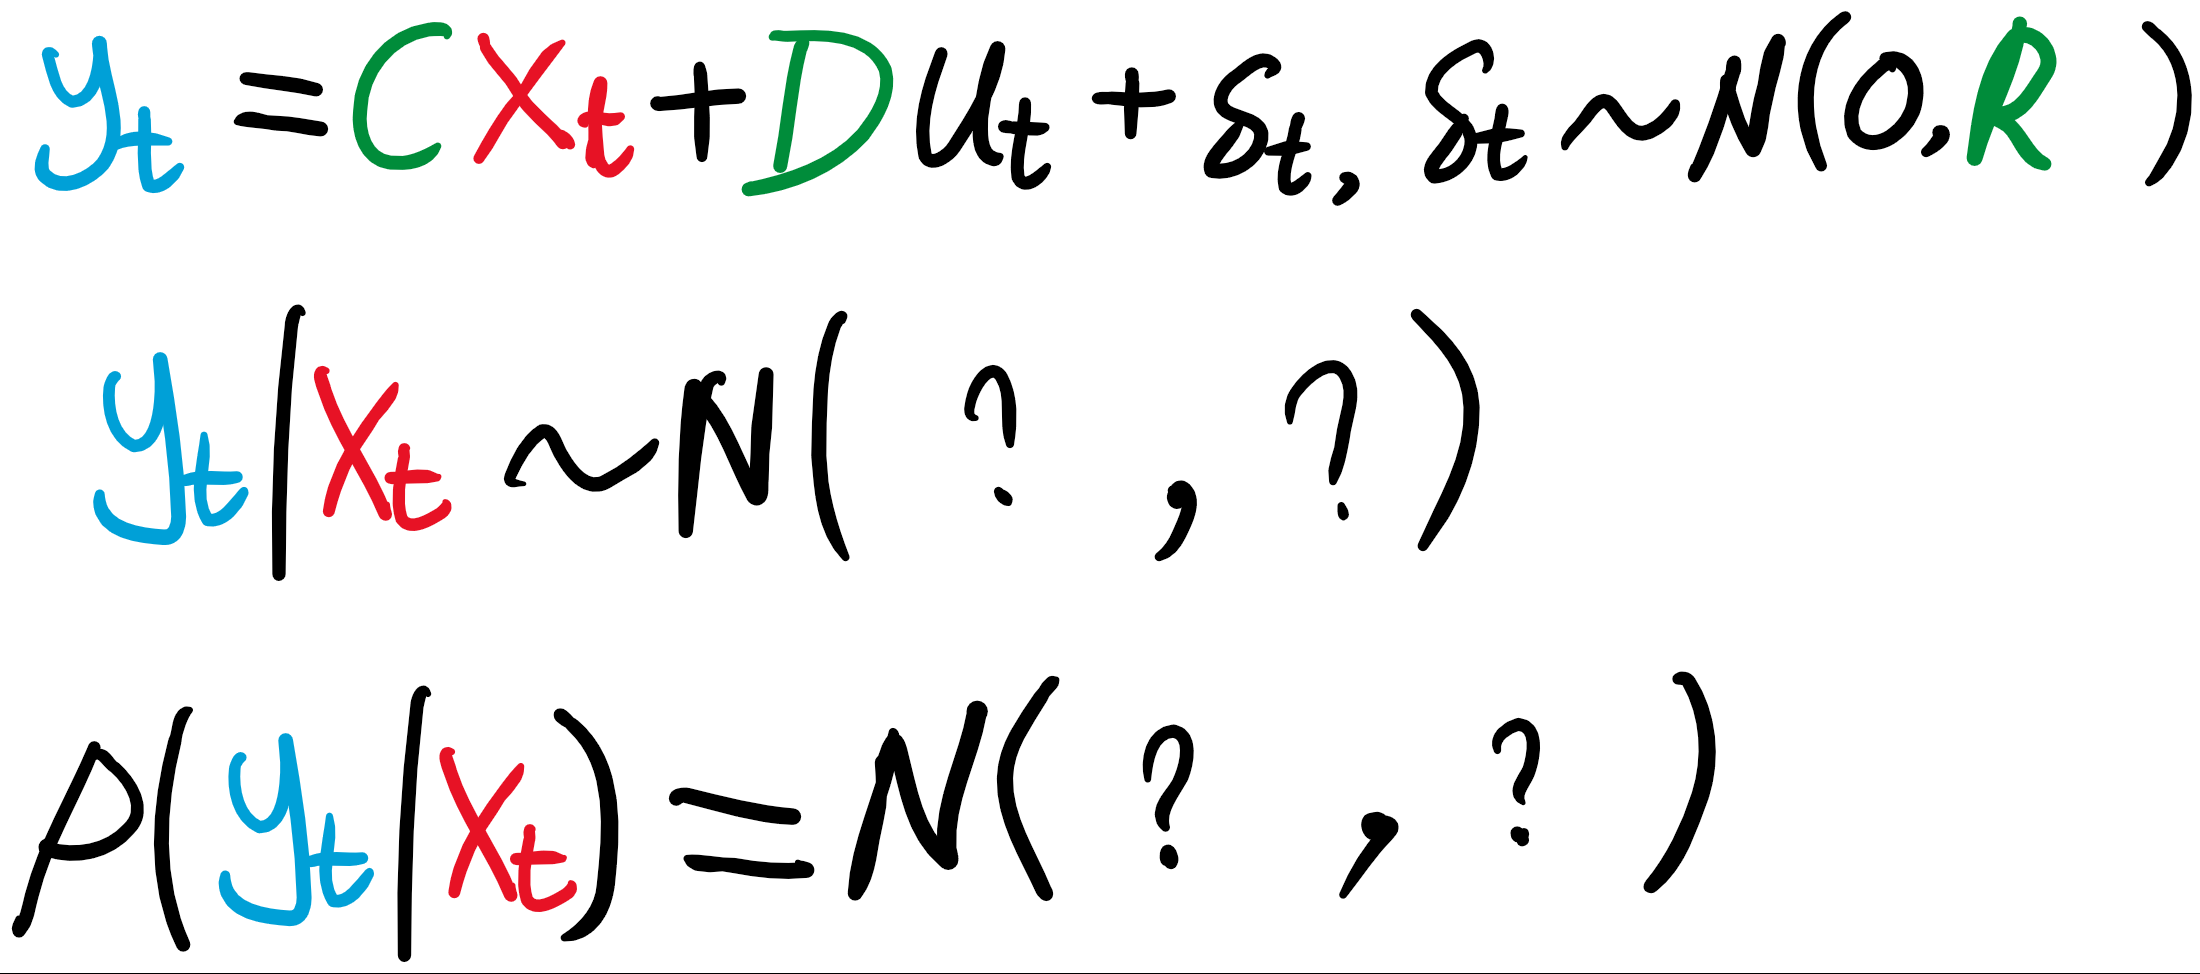 y_t = C x_t + D u_t + δ_t, δ_t ~ N(0, R )
y_t | x_t ~ N( ? , ? )
P(y_t | x_t) = N( ? , ? )